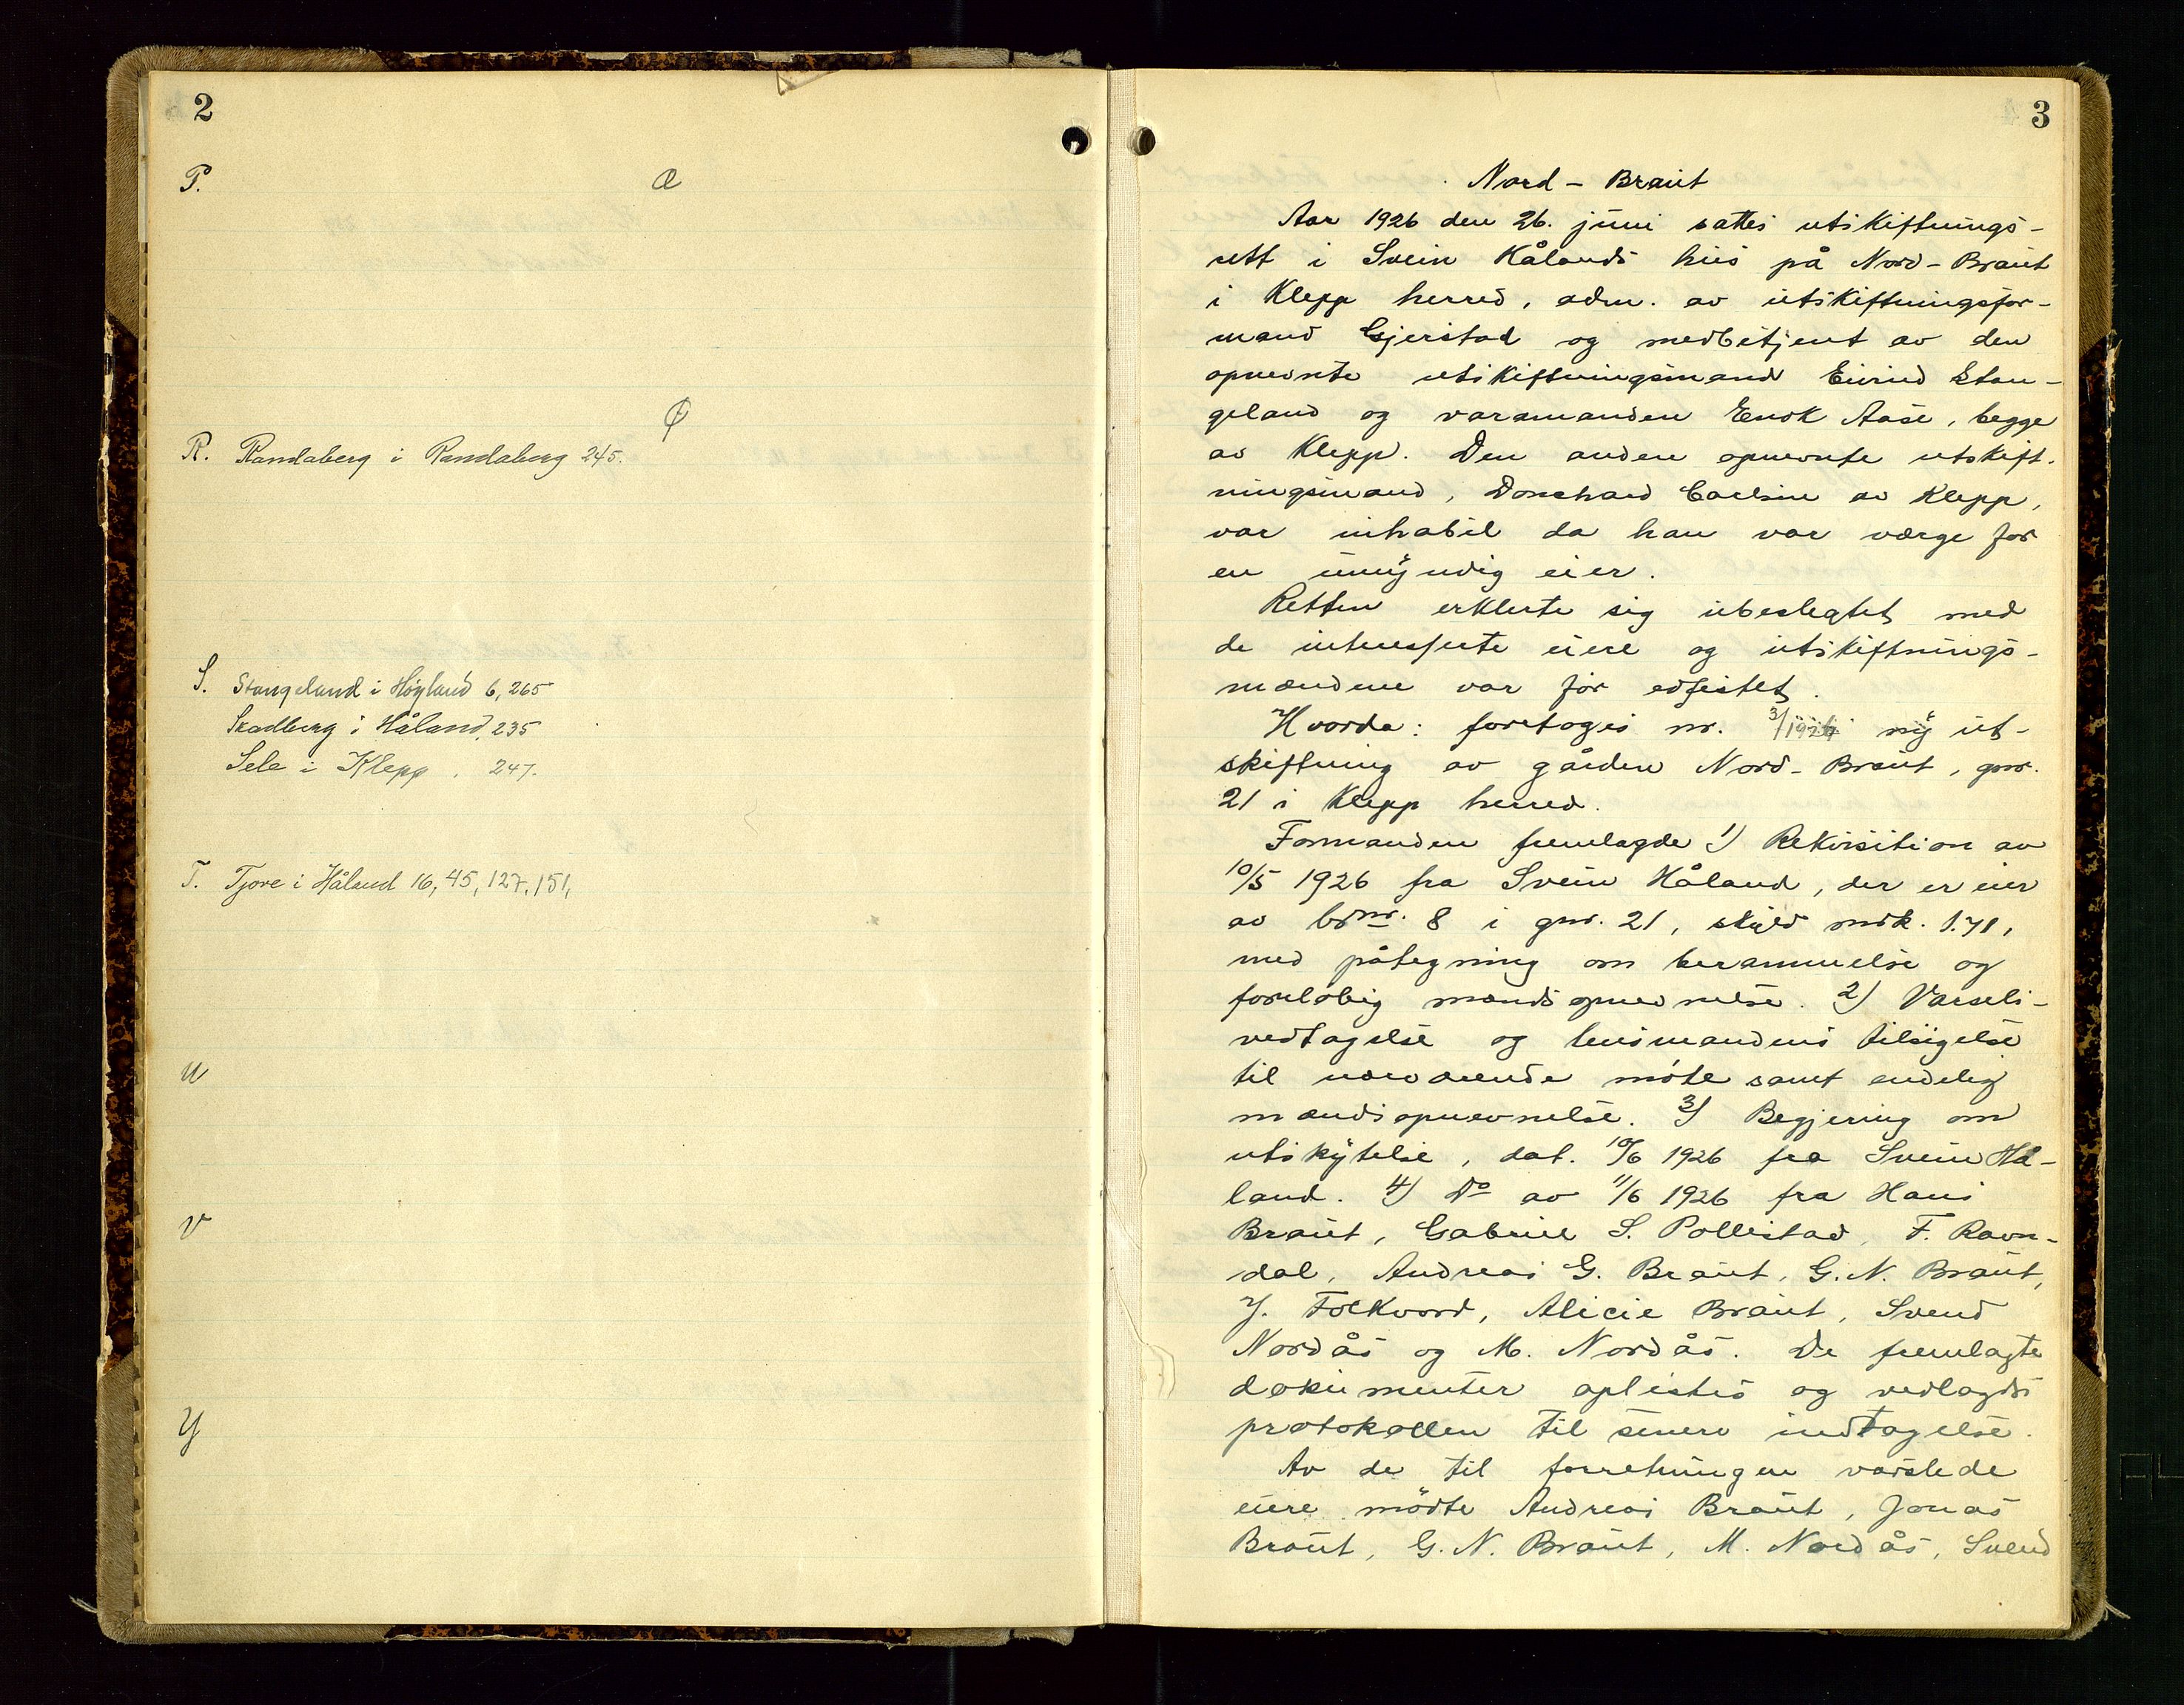 2
P.
Æ
Ø
R. Randaberg i Randaberg 245.
S. Stangeland i Høyland 6, 265
Skadberg i Håland, 235
Sele i Klepp. 247.
T. Tjore i Håland 16, 45, 127, 151,
U
V
Y
3
Nord - Braut
Aar 1926 den 26. juni sattes utskiftnings-
rett i Svein Hålands hus på Nord-Braut
i Klepp herred, adm. av utskiftningsfor-
mand Gjerstad og medbetjent av den
opnevnte utskiftningsmand Eivind Stan-
geland og varamanden Enok Aase, begge
av Klepp. Den anden opnevnte utskift-
ningsmand, av Klepp,
var inhabil da han var værge for
en umyndig eier.
Retten erklerte sig ubeslegtet med
de interesserte eiere og utskiftnings-
mændene var før edfestet.
Hvorda: foretoges nr. 3/1926 ny ut-
skiftning av gården Nord-Braut, gnr.
21 i Klepp herred.
Formanden fremlagde 1) Rekvisition av
10/5 1926 fra Svein Håland, der er eier
av brnr. 8 i gnr. 21, skyld mrk. 1.71,
med påtegning om berammelse og
foreløbig mandsopnevnelse. 2) Varsels-
vedtagelse og lensmandens tilsigelse
til nærværende møte samt endelig
mandsopnevnelse. 3) Begjering om
utskytelse, dat. 10/6 1926 fra Svein Hå-
land. 4) Do av 11/6 1926 fra Hans
Braut, Gabriel S. Pollestad, F. Ravn-
dal, Andreas G. Braut, G. N. Braut,
Y. Folkvord, Alicie Braut, Svend
Nordås og M. Nordås. De fremlagte
dokumenter oplestes og vedlagdes
protokollen til senere indtagelse.
Av de til forretningen varslede
eiere mødte Andreas Braut, Jonas
Braut, G. N. Braut, M. Nordås, Svend